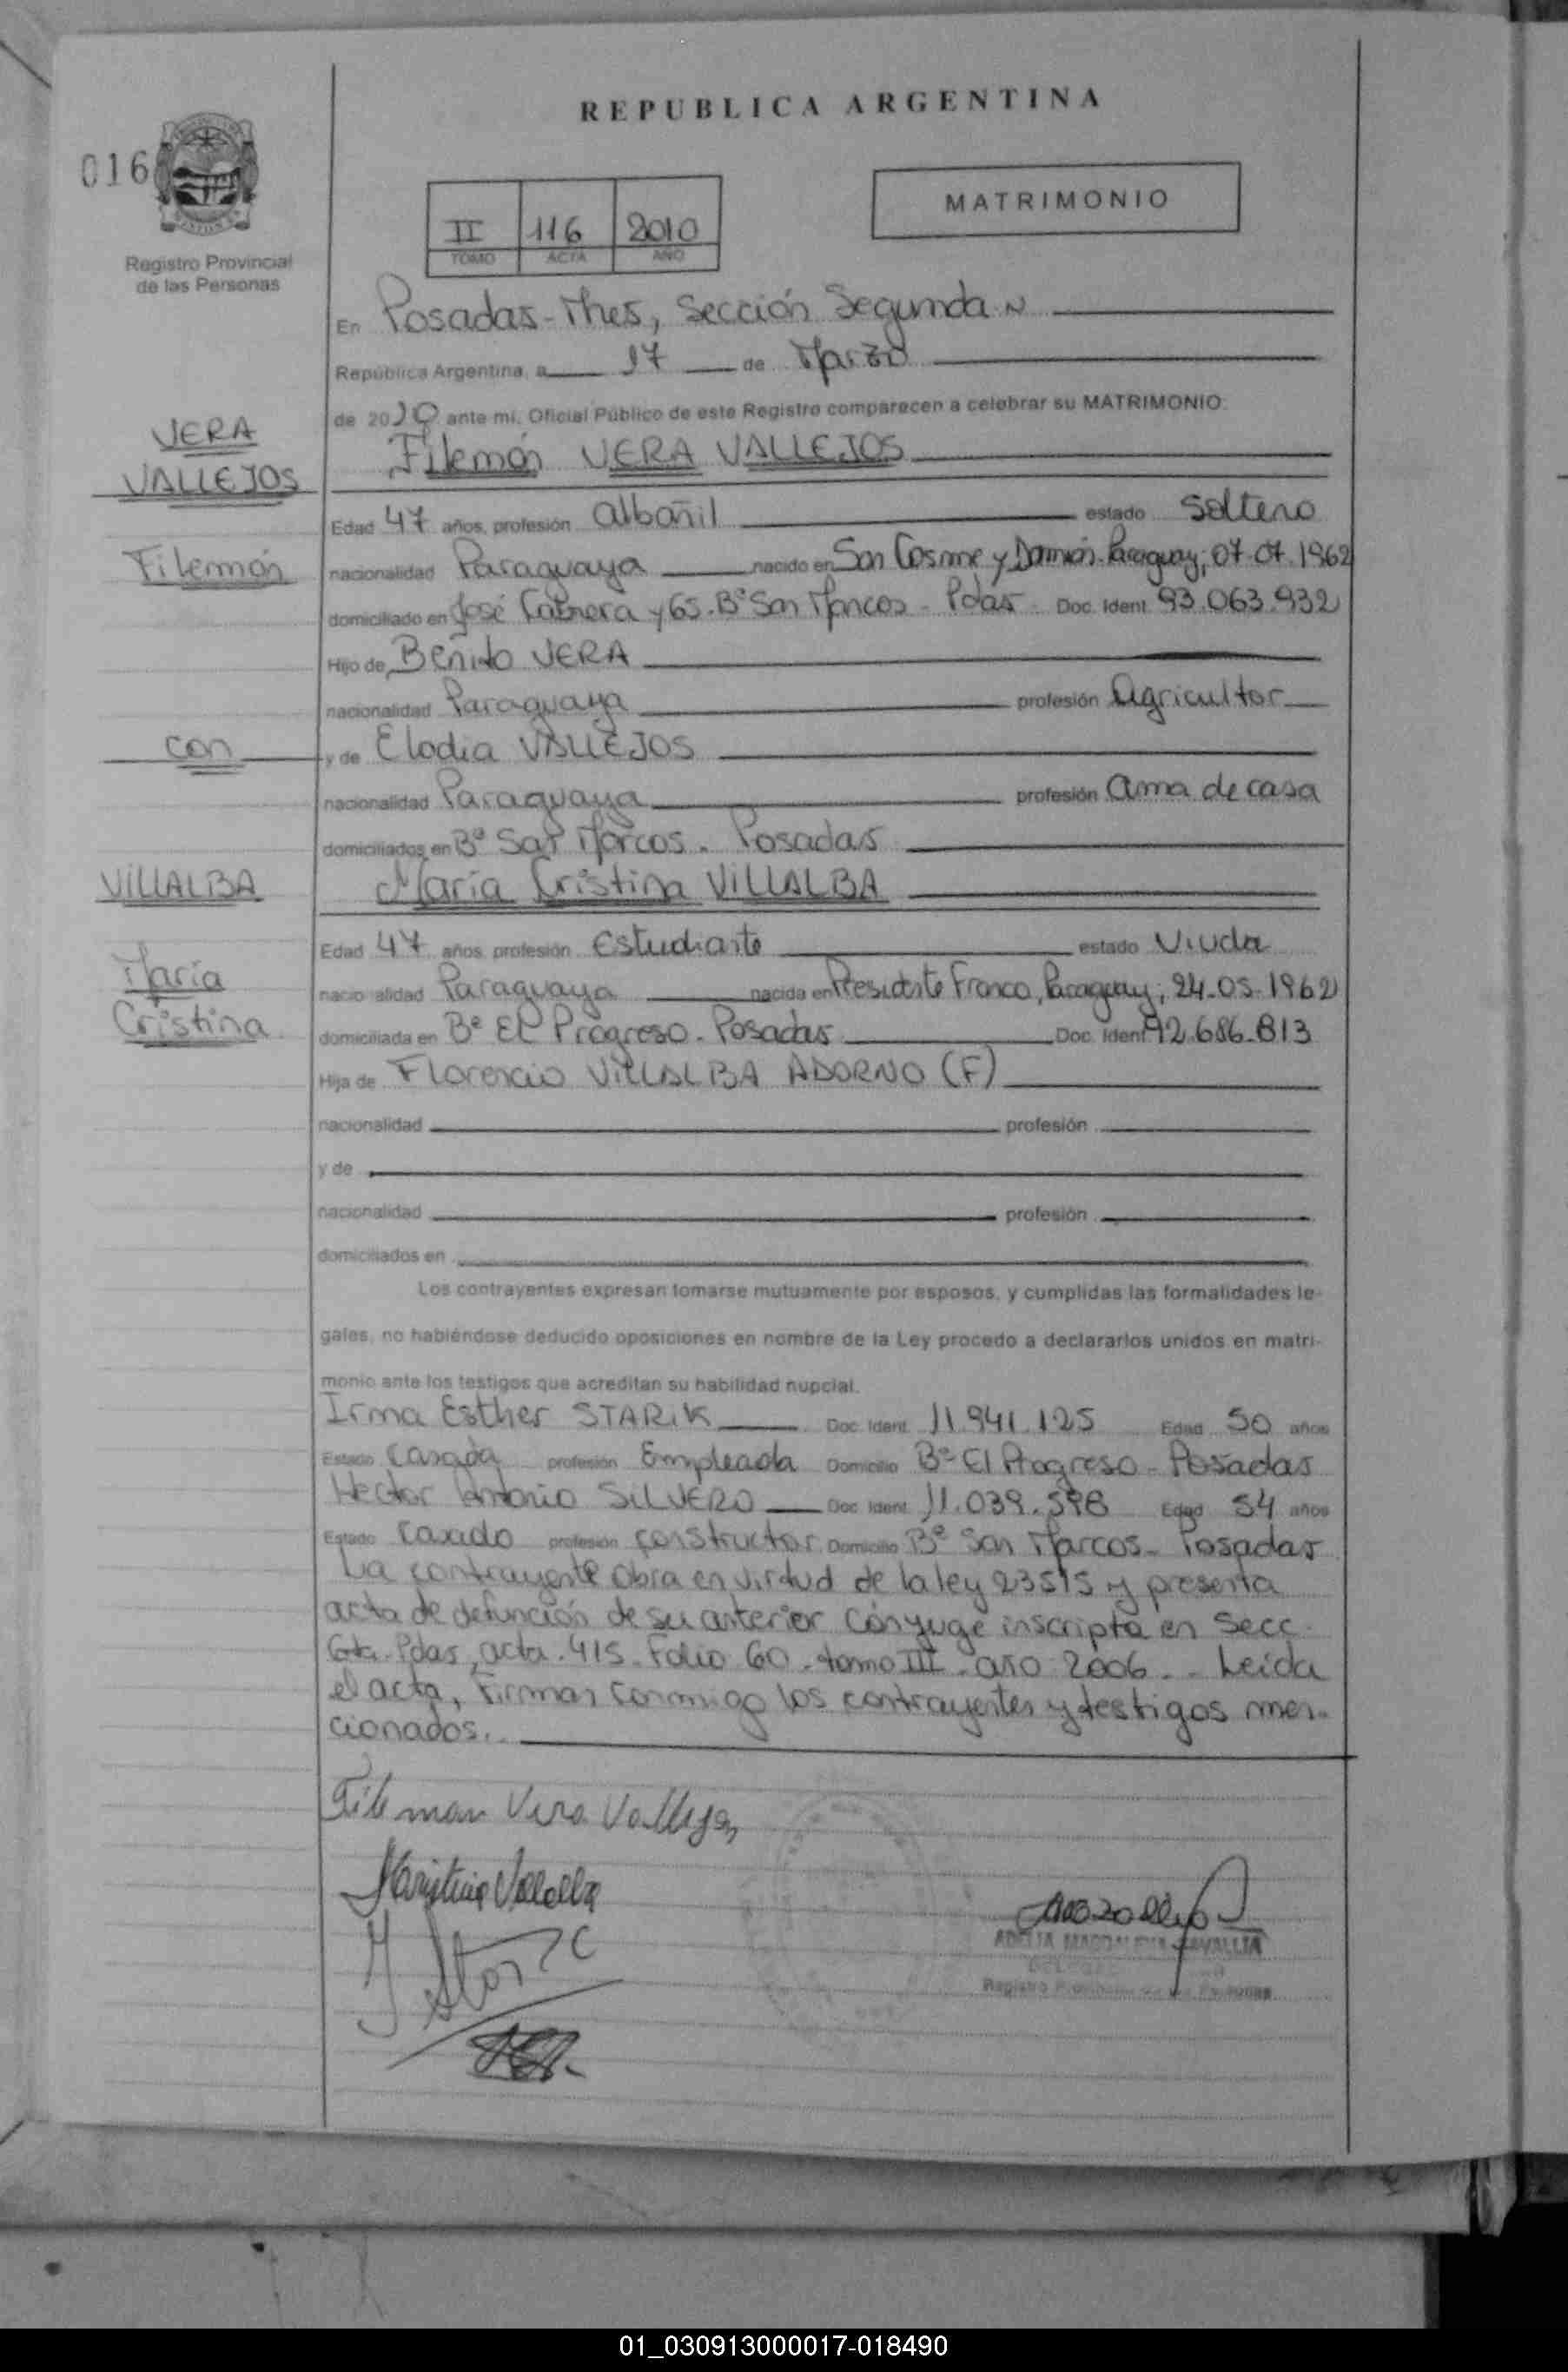 REPUBLICA ARGENTINA
016
MATRIMONIO
II 116 2010
TOMO ACTA AÑO
Registro Provincial
de las Personas
En Posadas-Mnes, Sección Segunda
República Argentina, a 17 de Marzo
de 2010 ante mi, Oficial Público de este Registro comparecen a celebrar su MATRIMONIO:
VERA
VALLEJOS
Filemón VERA VALLEJOS
Edad 47 años, profesión albañil estado Soltero
Filemón
nacionalidad Paraguaya nacido en San Cosme y Damián-Paraguay; 07-07-1962
domiciliado en José Cabrera y 65-Bº San Marcos - Pdas - Doc. Ident. 93.063.932
Hijo de Benito VERA
nacionalidad Paraguaya profesión Agricultor
con
y de Elodia VALLEJOS
nacionalidad Paraguaya profesión ama de casa
domiciliados en Bº San Marcos. Posadas
VILLALBA
María Cristina VILLALBA
Edad 47 años, profesión Estudiante estado Viuda
María
Cristina
nacionalidad Paraguaya nacida en Presidente Franco, Paraguay; 24-05-1962
domiciliada en Bº El Progreso - Posadas Doc. Ident. 92.686.813
Hija de Florencio VILLALBA ADORNO (F)
nacionalidad profesión
y de
nacionalidad profesión
domiciliados en
Los contrayentes expresan tomarse mutuamente por esposos, y cumplidas las formalidades le-
gales, no habiéndose deducido oposiciones en nombre de la Ley procedo a declararlos unidos en matri-
monio ante los testigos que acreditan su habilidad nupcial.
Irma Esther STARIK Doc. Ident. 11.941.125 Edad 50 años
Estado Casada profesión Empleada Domicilio Bº El Progreso - Posadas
Hector Antonio SILVERO Doc. Ident. 11.039.598 Edad 54 años
Estado Casado profesión constructor Domicilio Bº San Marcos - Posadas
La contrayente obra en virtud de la ley 23515 y presenta
acta de defunción de su anterior cónyuge inscripta en Secc.
6ta. Pdas, acta. 415. Folio 60. tomo III. año 2006.. Leida
el acta, Firman conmigo los contrayentes y testigos men-
cionados..
Filemon Vera Vallejos
MCristina Villalba
ADELIA MAGDALENA CAVALLIA
Registro Provincial de las Personas
01_030913000017-018490